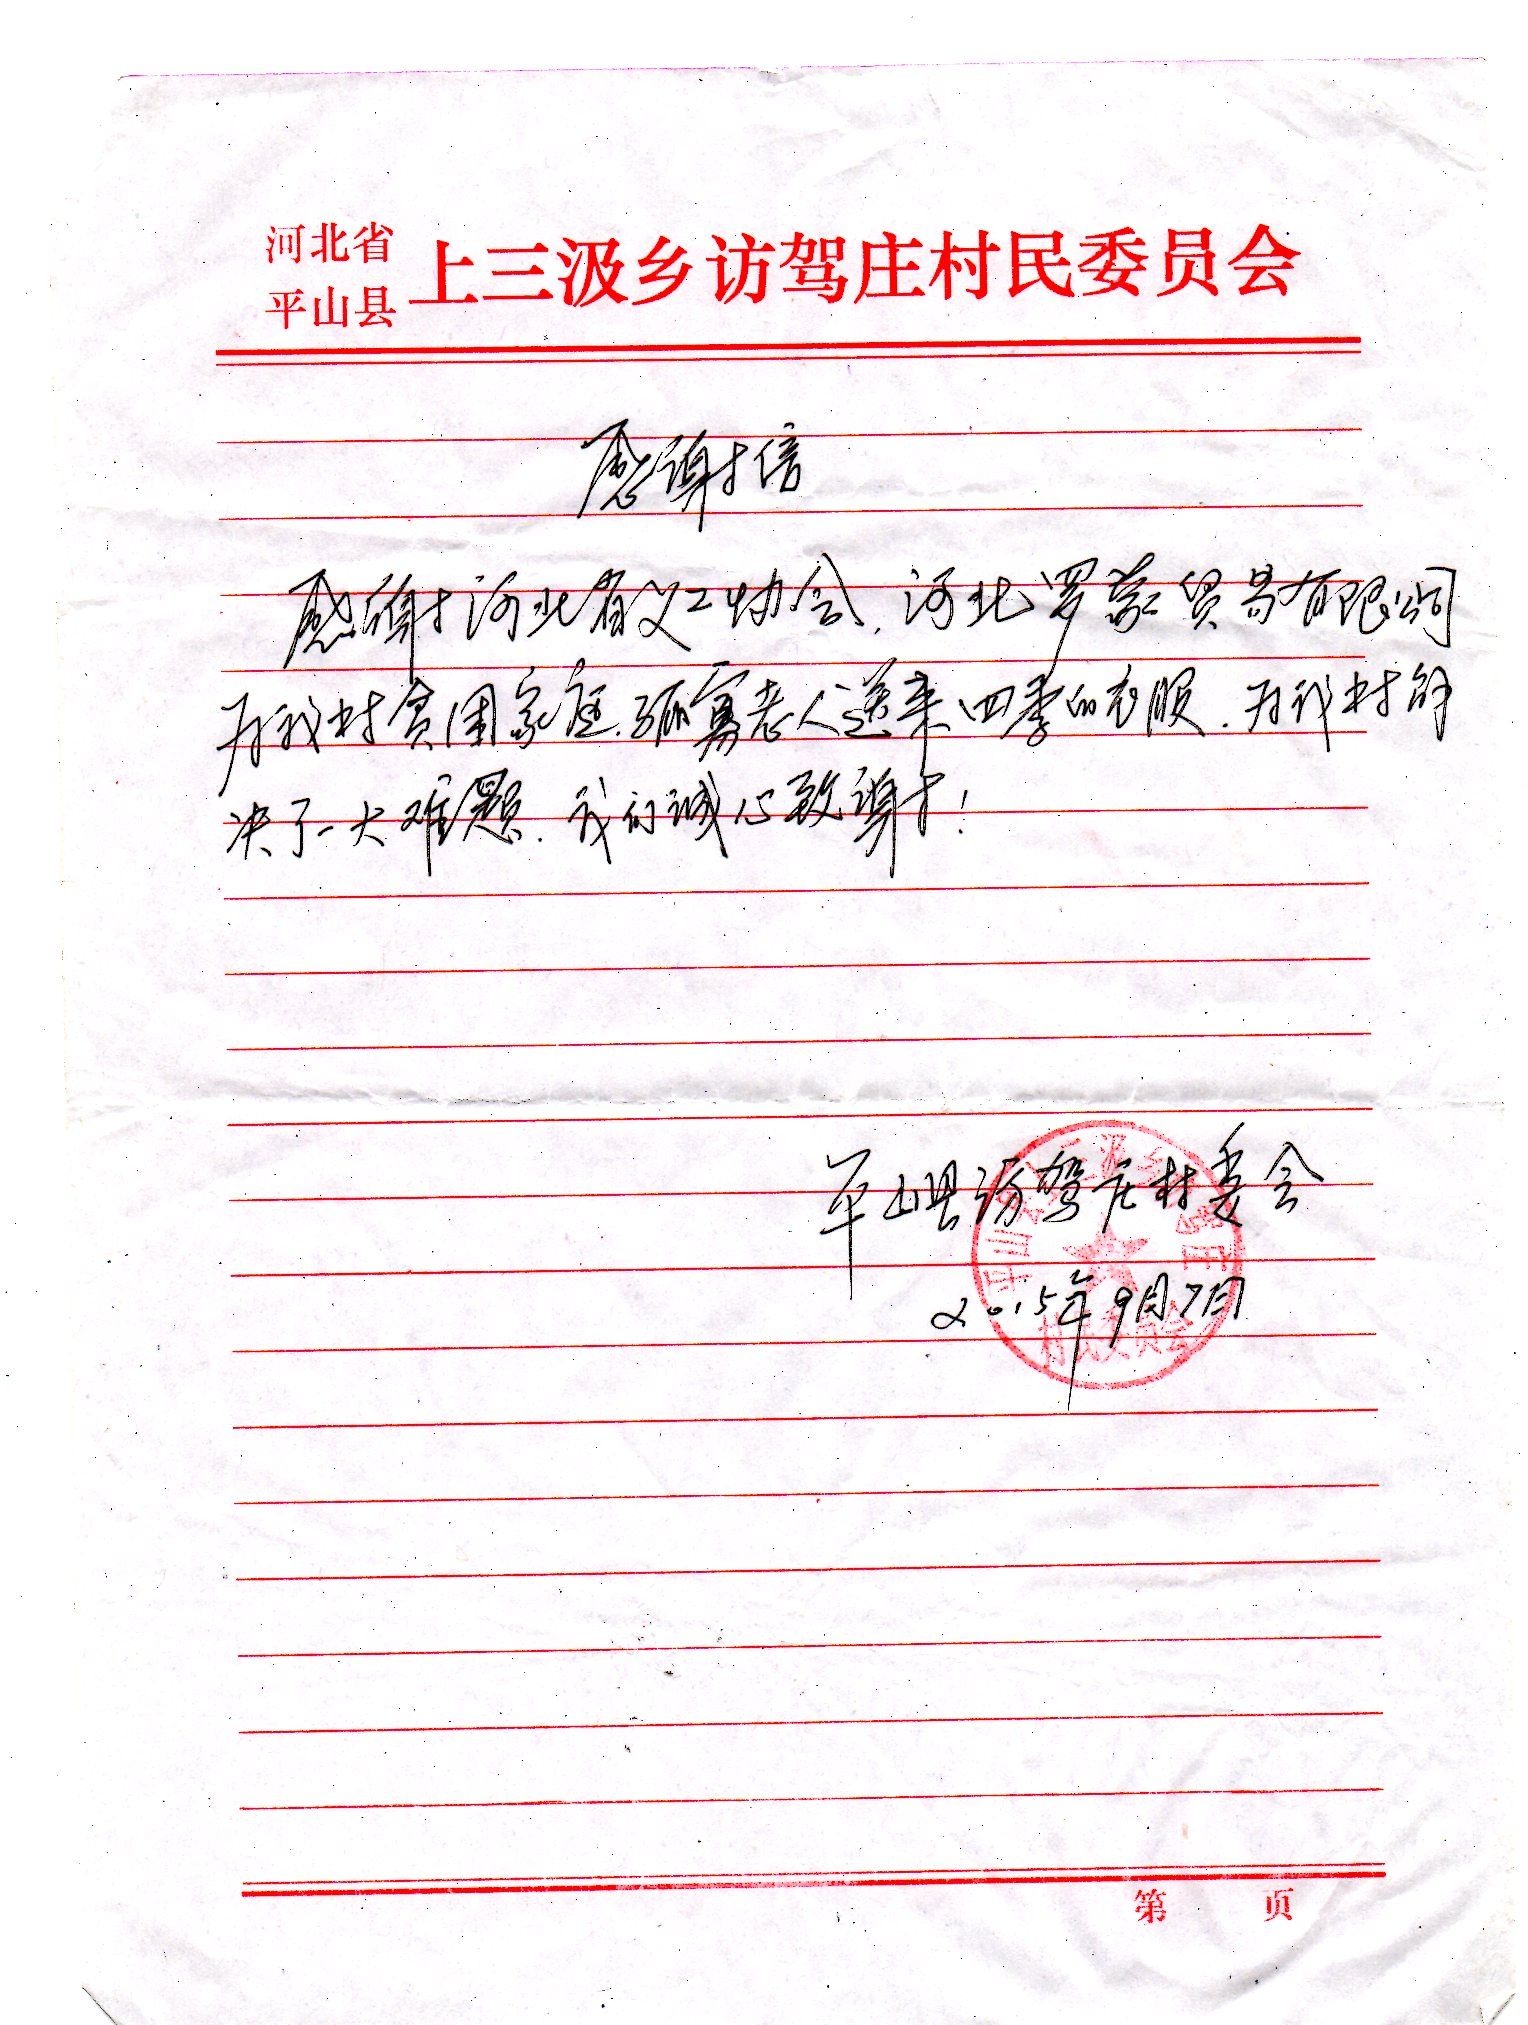 河北省
平山县
上三汲乡访驾庄村民委员会
感谢信
感谢河北省义工协会,河北罗蒙贸易有限公司
为我村贫困家庭.孤寡老人送来四季的衣服.为我村解
决了一大难题.我们诚心致谢!
平山县访驾庄村委会
2015年9月7日
平山县上三汲乡访驾庄
村民委员会
第 页